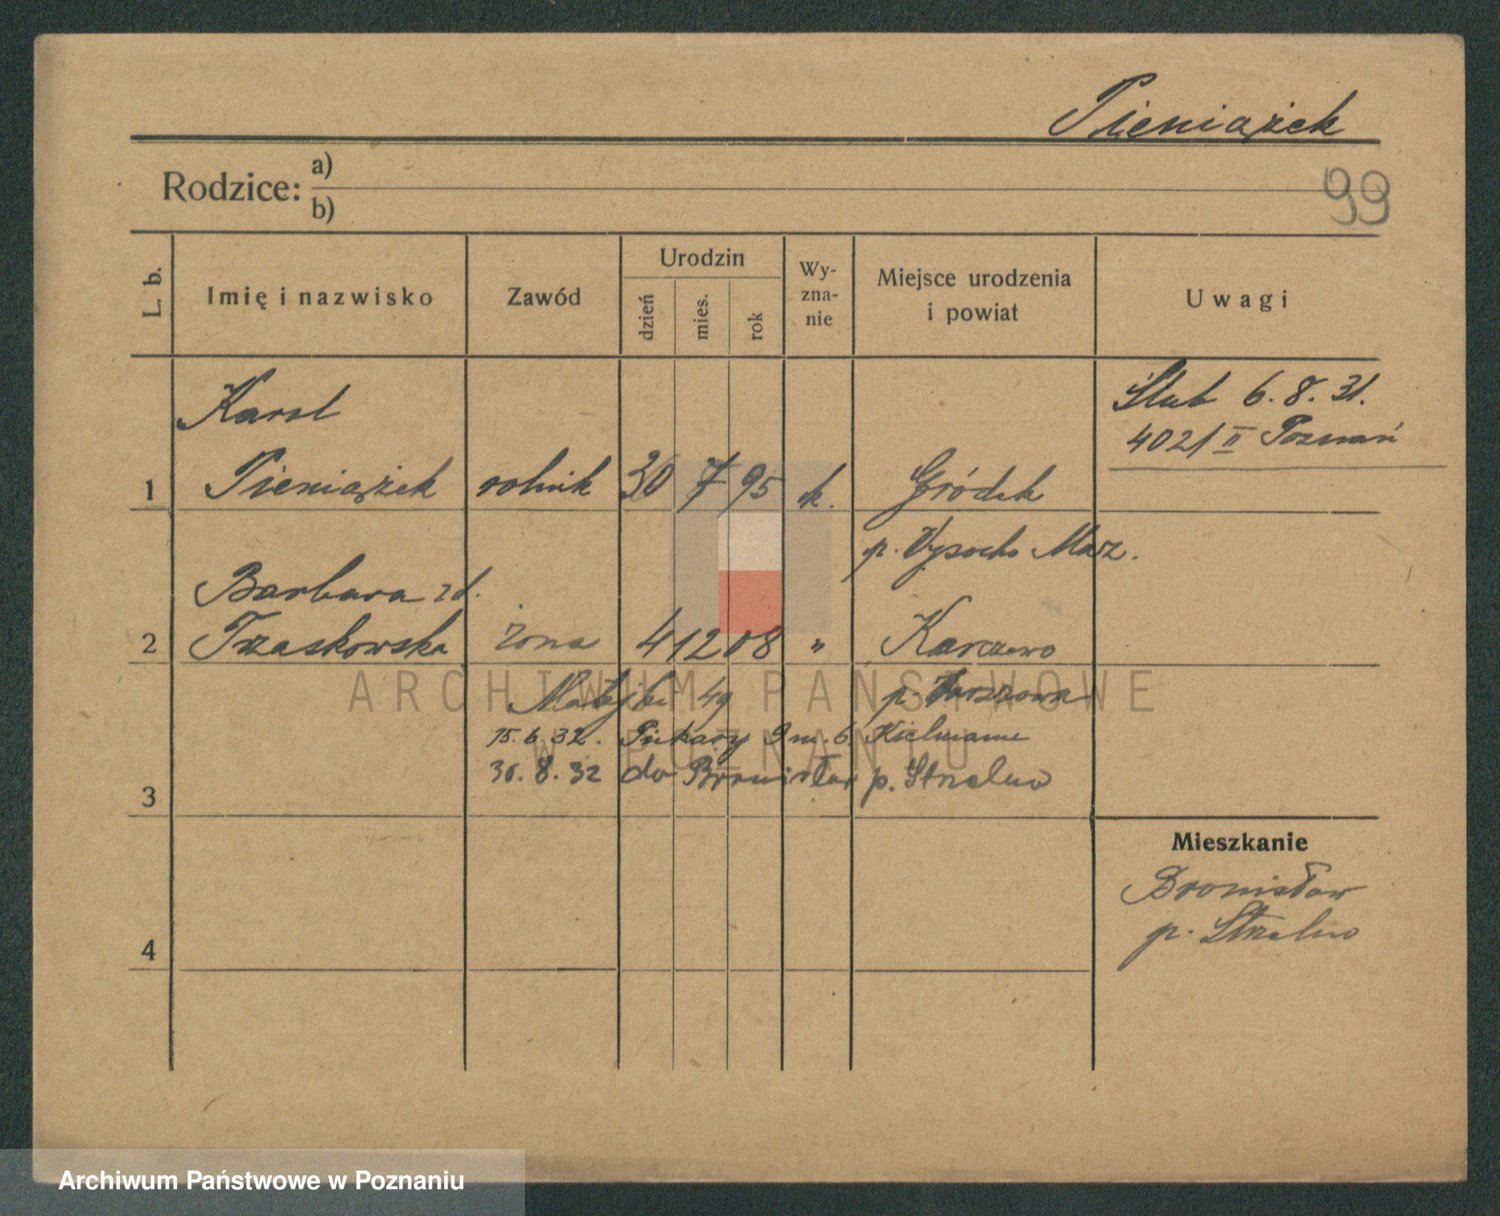 Pieniążek
Rodzice: a)
b)
99
L. b.
Imię i nazwisko
Zawód
Urodzin
dzień
mies.
rok
Wy-
zna-
nie
Miejsce urodzenia
i powiat
Uwagi
Karol
Ślub 6. 8. 31.
4021 II Poznań
1 Pieniążek rolnik 30 7 95 k. Gródek
p. Wysocko Maz.
Barbara zd.
2 Trzaskowska żona 4 12 08 " Karczewo
Matejki 49 p.
15. 6. 32. Piekary 9 m. 6
30. 8. 32 do Bronisław p. Strzelno
3
Mieszkanie
Bronisław
p. Strzelno
4
ARCHIWUM PAŃSTWOWE
W POZNANIU
Archiwum Państwowe w Poznaniu